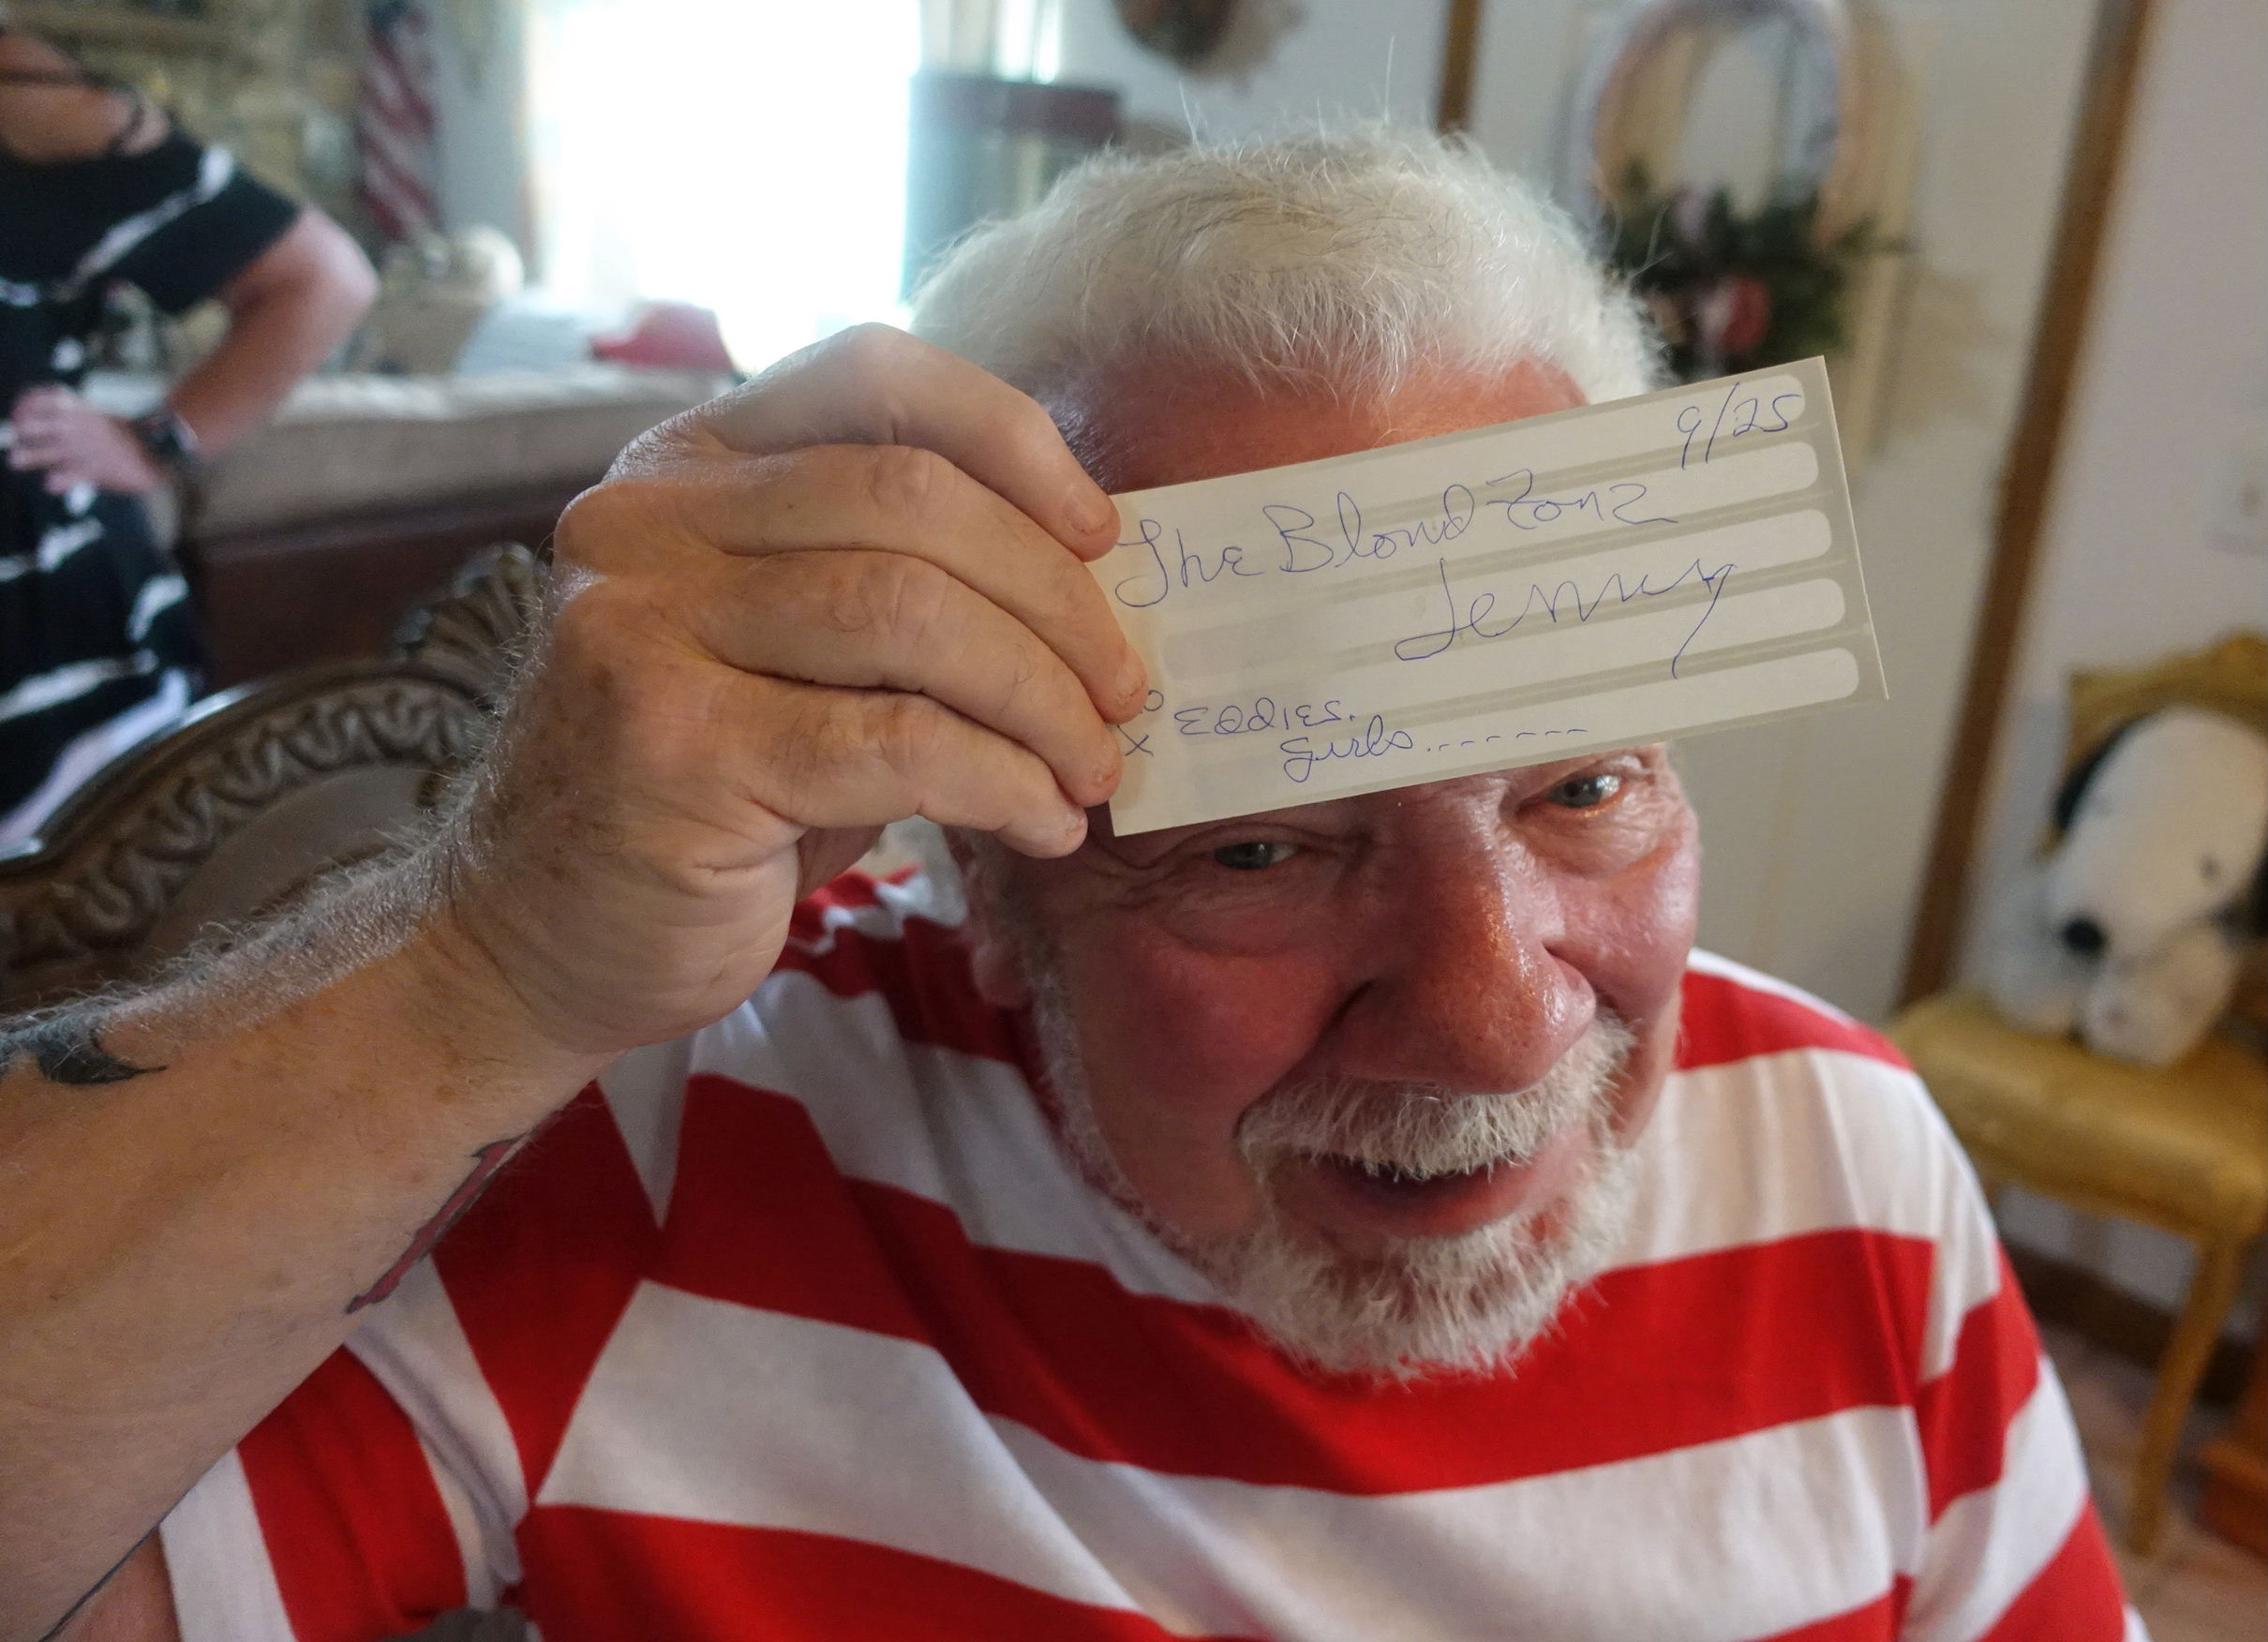 9/25
The Blond Zone
Jenny
EDDIES.
girls.......